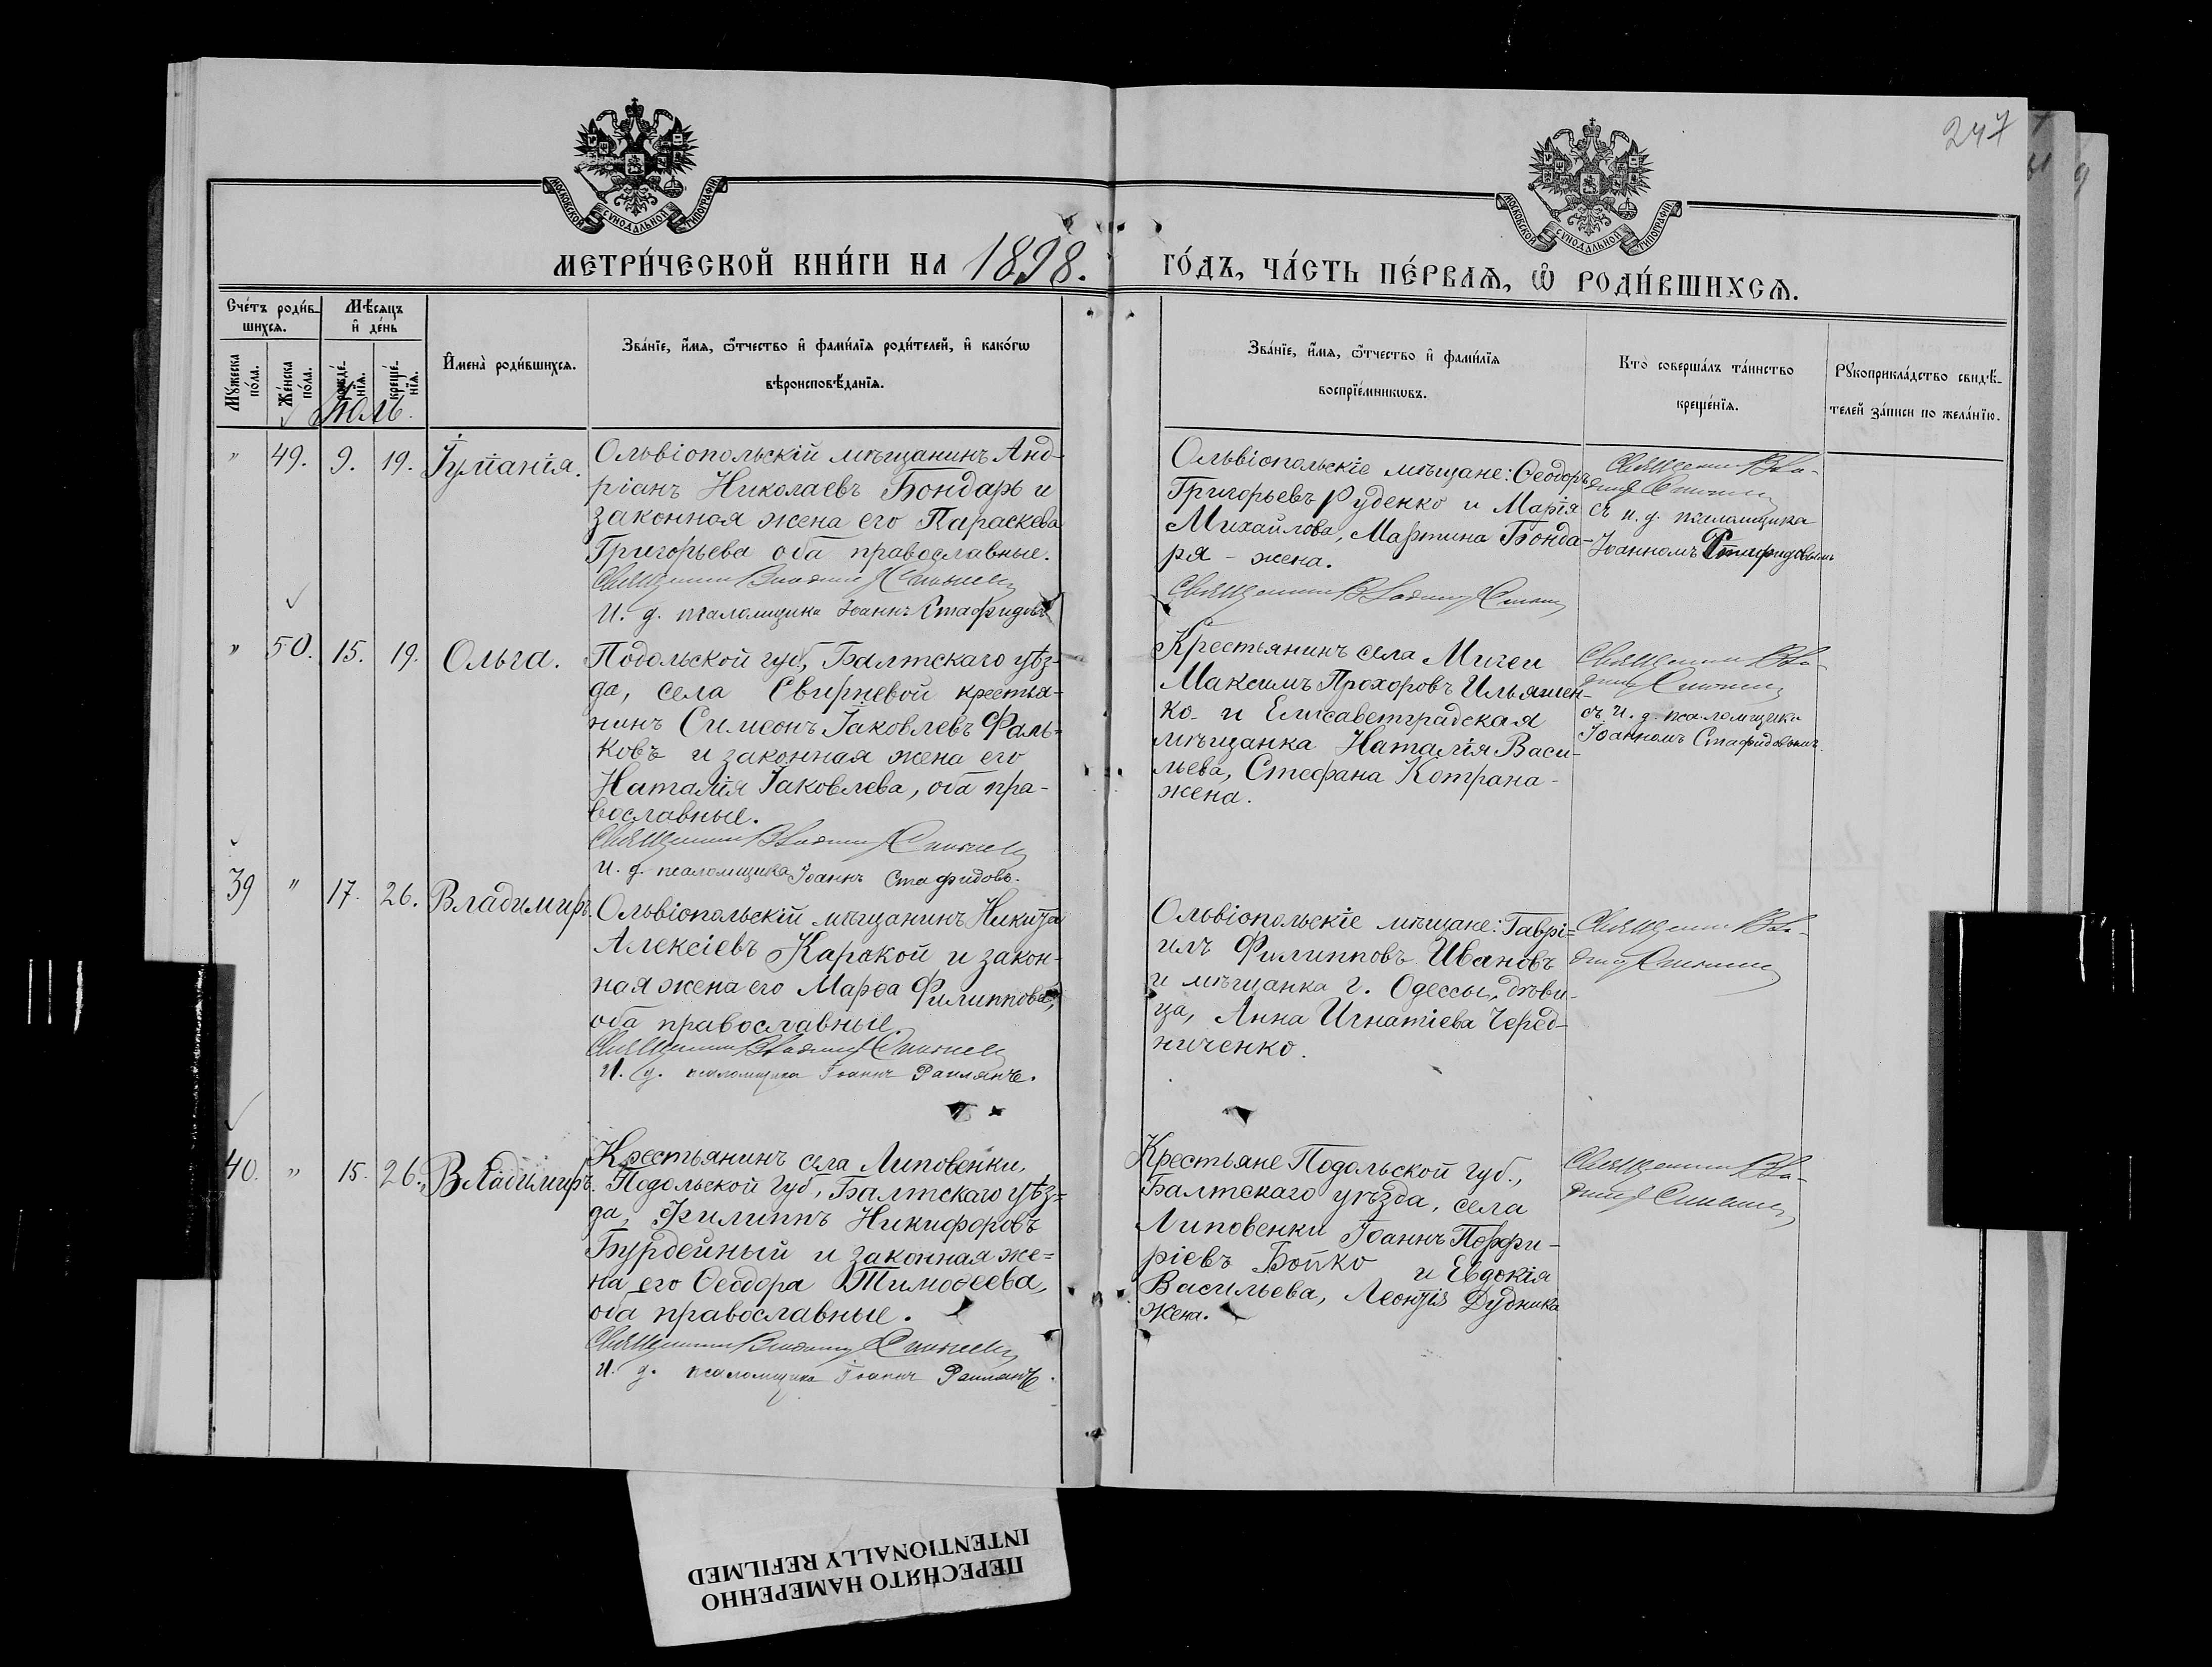 247
МОСКОВСКОЙ СѴНОДАЛЬНОЙ ТИПОГРАФІИ
МОСКОВСКОЙ СѴНОДАЛЬНОЙ ТИПОГРАФІИ
МЕТРИ́ЧЕСКОЙ КНИ́ГИ НА 1898.
ГО́ДЪ, ЧА́СТЬ ПЕ́РВАѦ, Ѽ РОДИ́ВШИХСѦ.
Сче́тъ роди́в-
шихсѧ.
Мꙋжеска по́ла.
Же́нска по́ла.
Мѣсѧцъ
и҆ де́нь
рожде́нїѧ.
креще́нїѧ.
И҆мена̀ роди́вшихсѧ.
Зва́нїе, и҆́мѧ, ѻ҆́тчество и҆ фами́лїѧ роди́телей, и҆ како́гѡ
вѣроисповѣ́данїѧ.
Зва́нїе, и҆́мѧ, ѻ҆́тчество и҆ фами́лїѧ
воспрїе́мникѡвъ.
Кто̀ соверша́лъ та́инство
креще́нїѧ.
Рꙋкоприкла́дство свидѣ́-
телей за́писи по жела́нїю.
Іюль.
" 49. 9. 19.
Ольвіопольскій мѣщанинъ Анд-
ріанъ Николаевъ Бондарь и
законная жена его Параскева
Григорьева оба православные.
Священникъ
И. д. псаломщика Іоаннъ Стафидовъ
Ольвіопольскіе мѣщане: Ѳеодоръ
Григорьевъ Руденко и Марія
Михайлова, Мартина Бонда-
ря - жена.
Священникъ
Священникъ Вла-
съ и. д. псаломщика
Іоанномъ Стафидовымъ
" 50. 15. 19. Ольга.
Подольской губ, Балтскаго уѣз-
да, села Свирневой крестья-
нинъ Симеонъ Іаковлевъ Фаль-
ковъ и законная жена его
Наталія Іаковлева, оба пра-
вославные.
Священникъ
И. д. псаломщика Іоаннъ Стафидовъ.
Крестьянинъ села Мигеи
Максимъ Прохоровъ Ильяшен-
ко и Елисаветградская
мѣщанка Наталія Васи-
льева, Стефана Котрана -
жена.
Священникъ Вла-
съ И. д. псаломщика
Іоанномъ Стафидовымъ.
39 " 17. 26. Владимиръ.
Ольвіопольскій мѣщанинъ Никита
Алексіевъ Каракой и закон-
ная жена его Марѳа Филиппова,
оба православные.
Священникъ
И. д. псаломщика Іоаннъ
Ольвіопольскіе мѣщане: Гаврі-
илъ Филипповъ Ивановъ
и мѣщанка г. Одессы, дѣви-
ца, Анна Игнатіева Черед-
ниченко.
Священникъ Вла-
40. " 15. 26. Владимиръ.
Крестьянинъ села Липовенки,
Подольской губ, Балтскаго уѣз-
да, Филиппъ Никифоровъ
Бурдейный и законная же-
на его Ѳеодора Тимоѳеева,
оба православные.
Священникъ
И. д. псаломщика Іоаннъ
Крестьяне Подольской губ.,
Балтскаго уѣзда, села
Липовенки Іоаннъ Порфи-
ріевъ Бойко и Евдокія
Васильева, Леонтія Дудника
жена.
Священникъ Вла-
ПЕРЕСНЯТО НАМЕРЕННО
INTENTIONALLY REFILMED